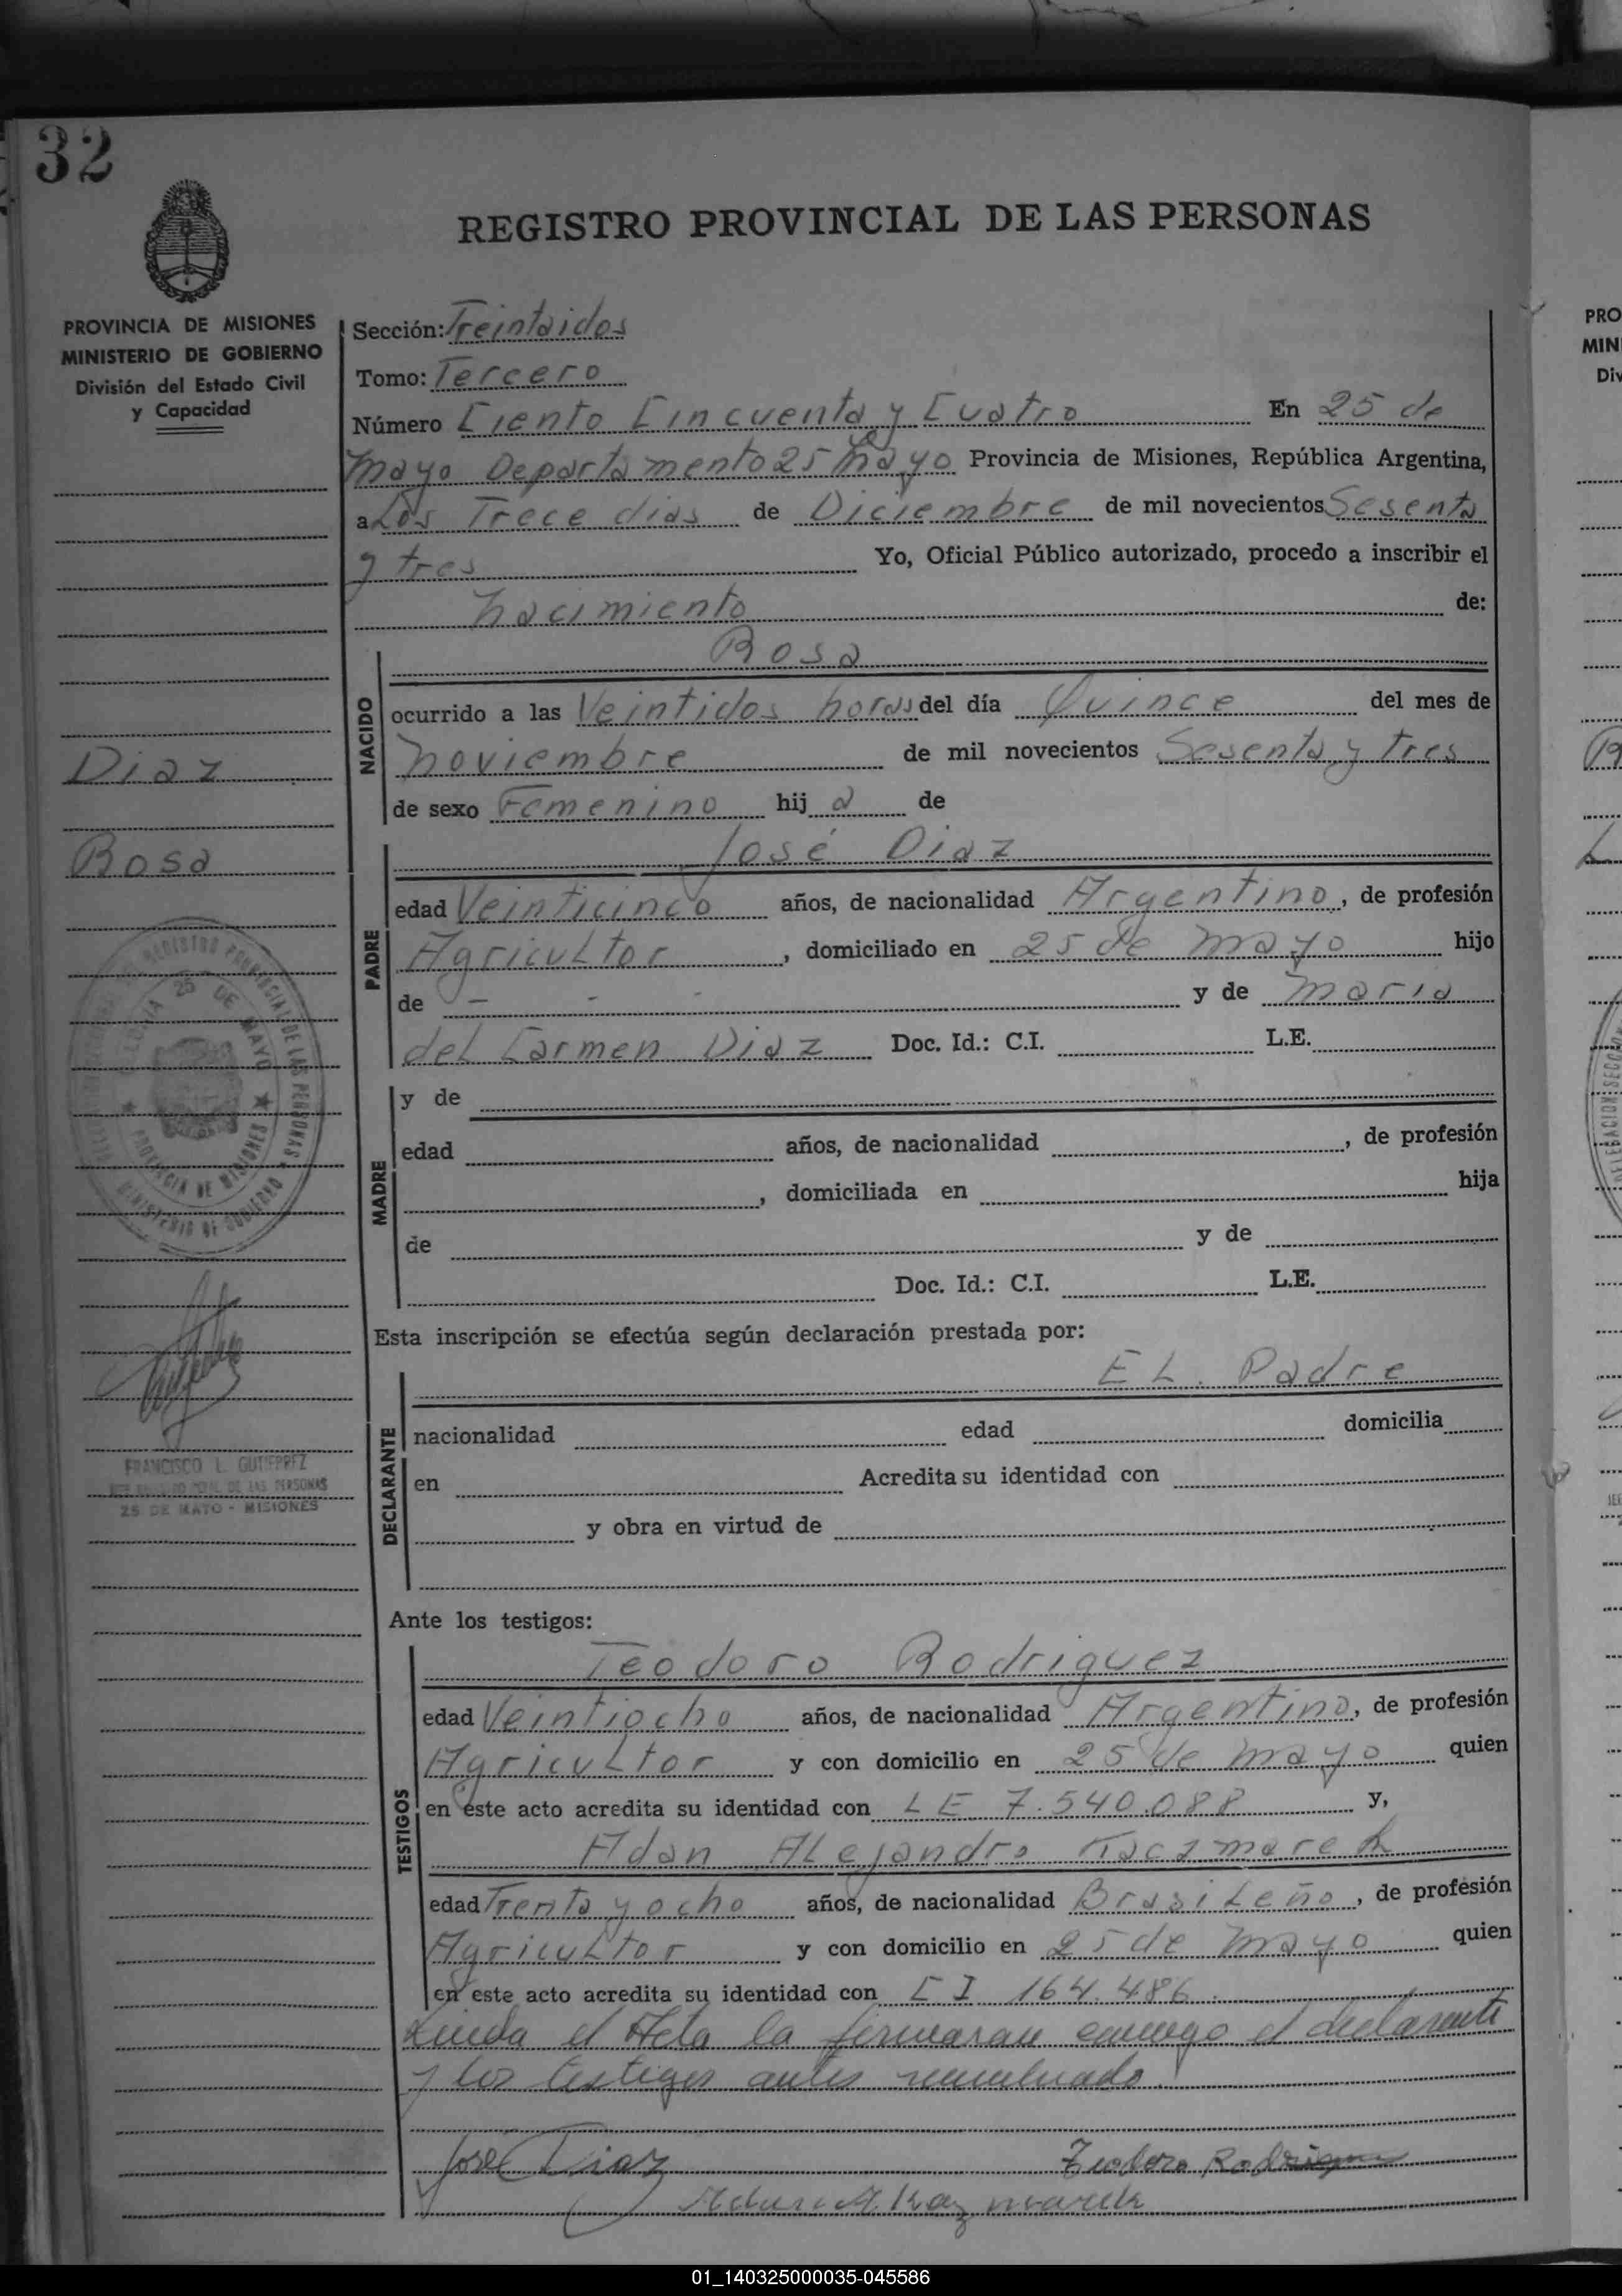 32
REGISTRO PROVINCIAL DE LAS PERSONAS
PROVINCIA DE MISIONES
MINISTERIO DE GOBIERNO
División del Estado Civil
y Capacidad
Diaz
Rosa
REGISTRO PROVINCIAL DE LAS PERSONAS
COLONIA 25 DE MAYO
PROVINCIA DE MISIONES
MINISTERIO DE GOBIERNO
FRANCISCO L. GUTIERREZ
DE LAS PERSONAS
25 DE MAYO - MISIONES
Sección: Treintaidos
Tomo: Tercero
Número Ciento Cincuenta y Cuatro En 25 de
mayo Departamento 25 de Mayo Provincia de Misiones, República Argentina,
a Los Trece dias de Diciembre de mil novecientos Sesenta
y tres Yo, Oficial Público autorizado, procedo a inscribir el
nacimiento de:
NACIDO
Rosa
ocurrido a las Veintidos horas del día Quince del mes de
noviembre de mil novecientos Sesenta y tres
de sexo Femenino hij a de
PADRE
José Diaz
edad Veinticinco años, de nacionalidad Argentino, de profesión
Agricultor, domiciliado en 25 de mayo hijo
de - - - y de Maria
del Carmen Diaz Doc. Id.: C.I. L.E.
MADRE
y de
edad años, de nacionalidad , de profesión
, domiciliada en hija
de y de
Doc. Id.: C.I. L.E.
Esta inscripción se efectúa según declaración prestada por:
DECLARANTE
EL Padre
nacionalidad edad domicilia
en Acredita su identidad con
y obra en virtud de
Ante los testigos:
TESTIGOS
Teodoro Rodriguez
edad Veintiocho años, de nacionalidad Argentino, de profesión
Agricultor y con domicilio en 25 de mayo quien
en este acto acredita su identidad con LE 7.540.088 y,
Adan Alejandro Kaczmarek
edad Trenta y ocho años, de nacionalidad Brasileño, de profesión
Agricultor y con domicilio en 25 de mayo quien
en este acto acredita su identidad con CI 164.486.
Leida el Acta la firmaran conmigo el declarante
y los testigos antes nombrado.
José Diaz Teodoro Rodriguez
Adan A. Kaczmarek
PRO
MIN
Div
01_140325000035-045586